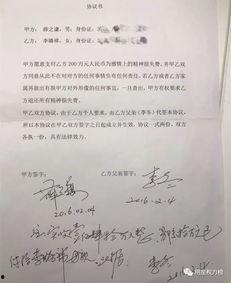 协议书
甲方：薛之谦，男；身份证：
乙方：李雨桐，女；身份证：
甲方愿意支付乙方200万元人民币为感情上的精神损失费，并甲乙双
方同意从此不在对对方的任何事情负有任何责任。若乙方或者乙方家
属再做出有损甲方对外形像的任何事情，一旦查出，甲方有权要求乙
方退还所有精神损失费。
甲乙双方协议，由于乙方个人要求，由乙方父亲（李冬）代签本协议，
所以本协议在甲乙双方签字之日起成立并生效。协议一式两份，双方
各执一份，具有法律效力。
甲方签字：
乙方父亲签字：
李冬
2016.02.04
2016.2.4
李冬
@明星权力榜